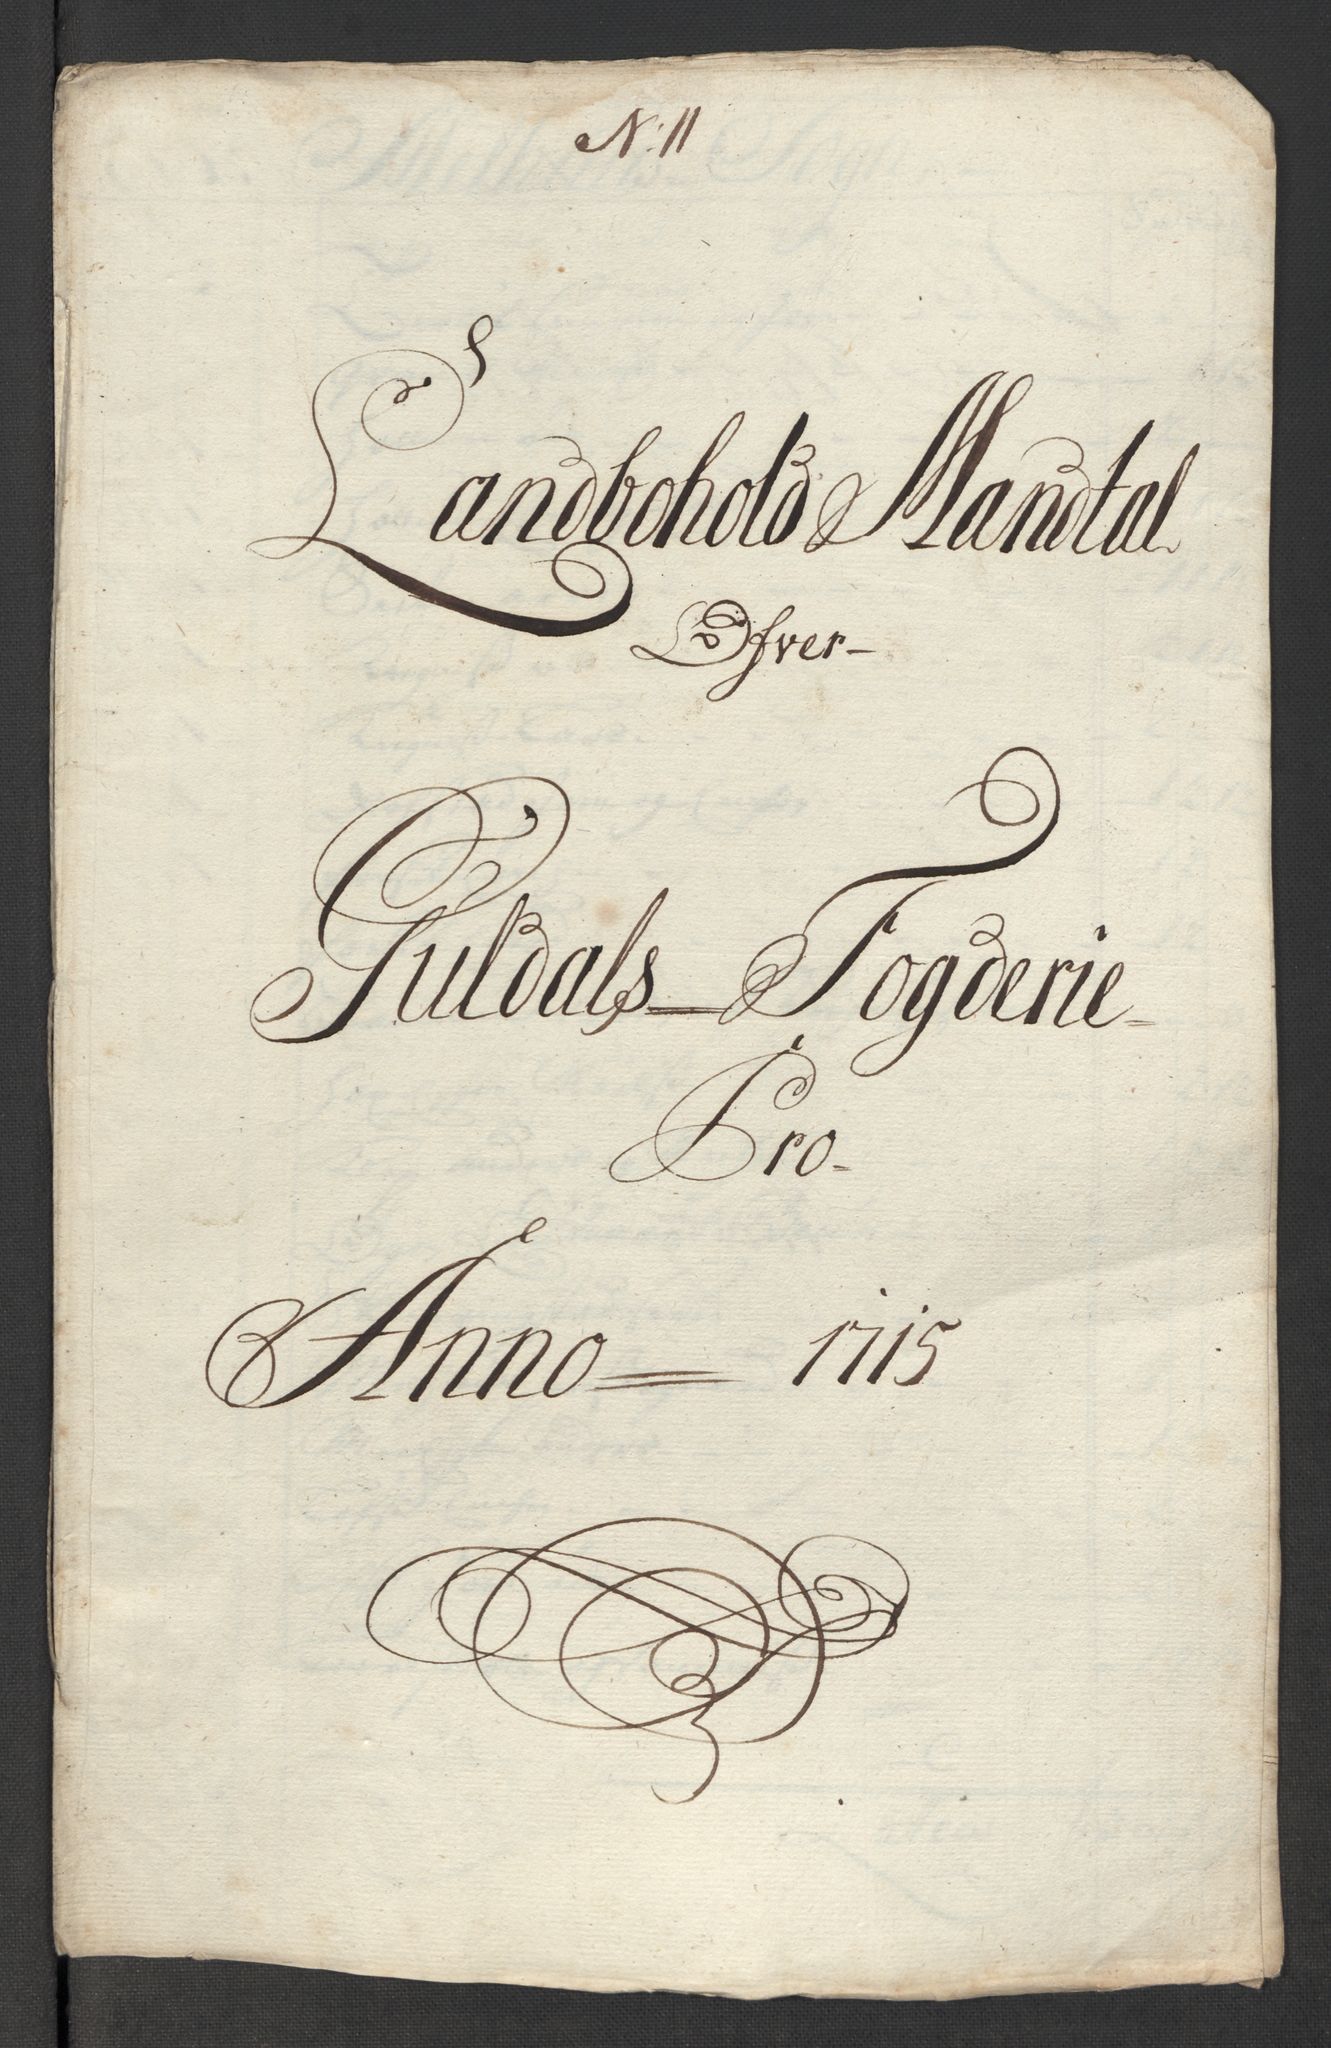 N: 11
Landbohold Mandtal
Ofver-
Guldals Fogderie-
Pro-
Anno 1715